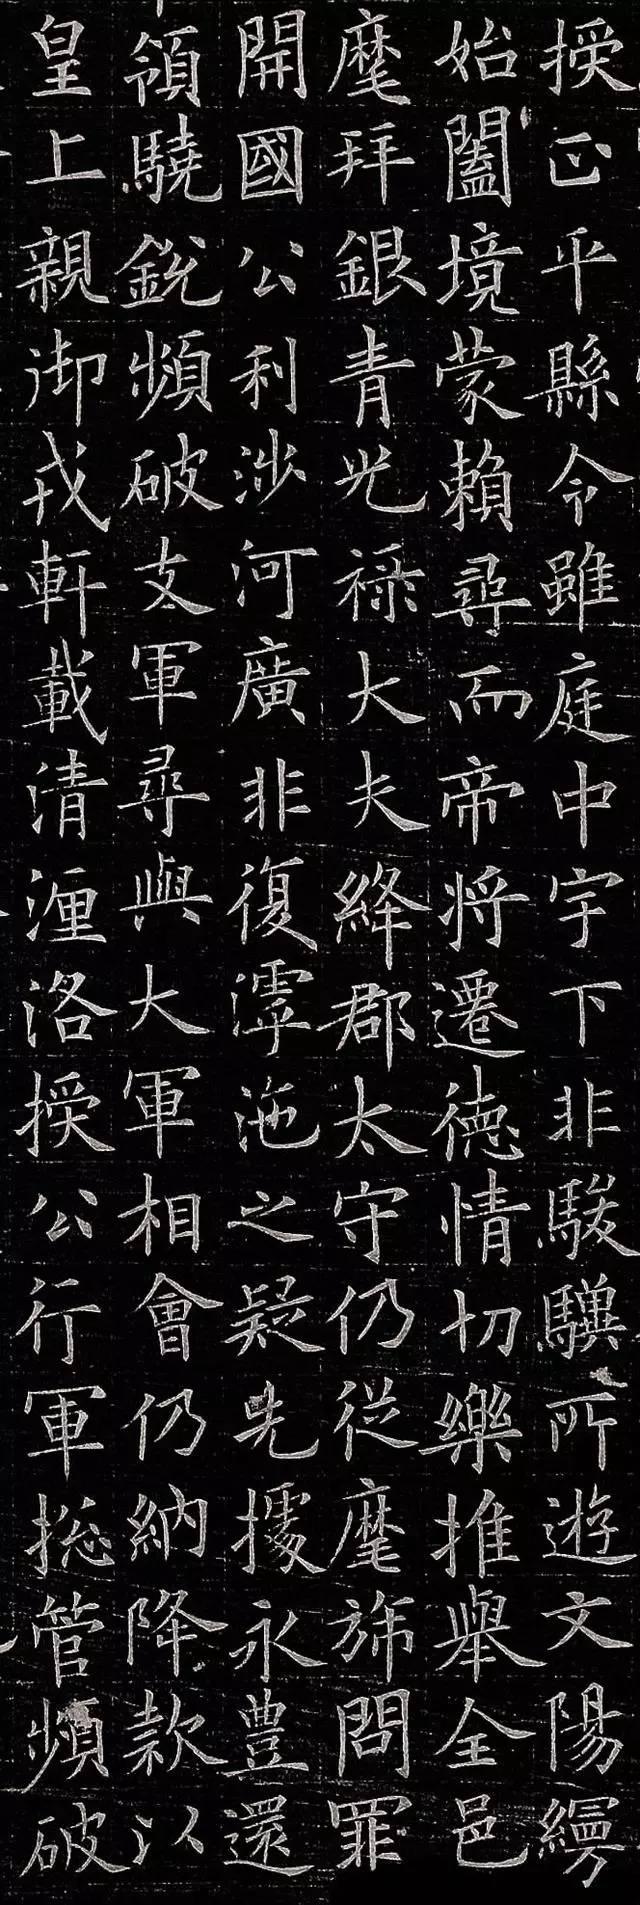 授正平縣令雖庭中宇下非駿驥所遊文陽縵
始闔境蒙賴尋而帝將遷德情切樂推舉全邑
麾拜銀青光祿大夫絳郡太守仍從麾旆問罪
開國公利涉河廣非復滹沲之疑先據永豊還
領驍銳頻破支軍尋與大軍相會仍納降款以
皇上親御戎軒載清湹洛授公行軍摠管頻破